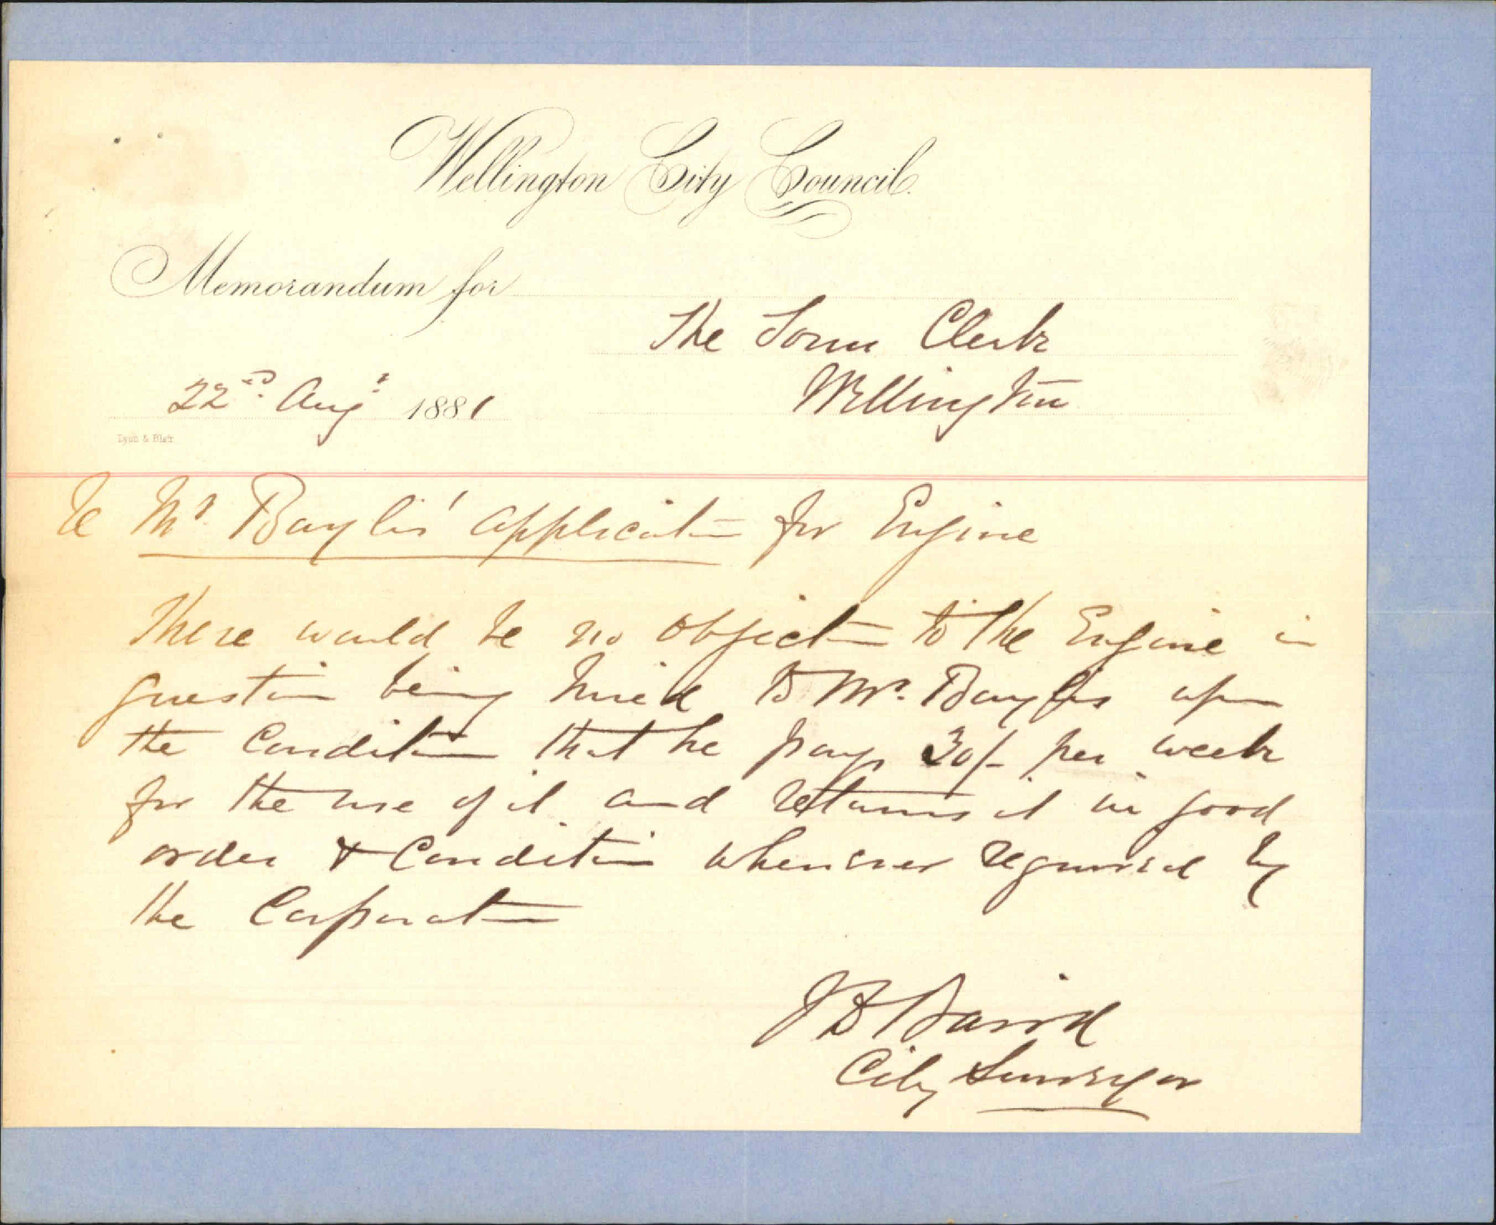 Wellington City Council.
Memorandum for
The Town Clerk
Wellington
22nd Augt 1881
Lyon & Blair
Re Mr. Baylis' application for Engine
There would be no objection to the Engine in
question being hired to Mr. Baylis upon
the Condition that he pays 30/- per week
for the use of it and returns it in good
order & Condition whenever required by
the Corporation
J D Baird
City Surveyor